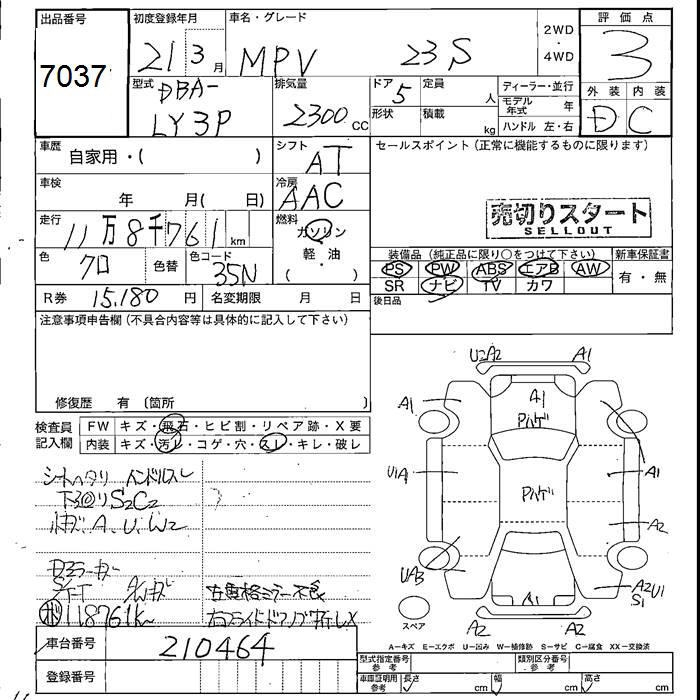 出品番号
7037
初度登録年月
21 3月
車名・グレード
MPV 23S
2WD
・
4WD
評価点
3
型式
DBA-
LY3P
排気量
2300 CC
ドア 5
定員
人
形状
積載
kg
ディーラー・並行
モデル年式 年
ハンドル 左・右
外装 内装
D C
車歴
自家用・( )
シフト
AT
セールスポイント (正常に機能するものに限ります)
車検
年 月( 日)
冷房
AAC
売切りスタート
SELLOUT
走行
11万8千761 km
燃料
ガソリン
軽・油
( )
色
クロ
色替
色コード
35N
装備品 (純正品に限り○をつけて下さい)
新車保証書
PS PW ABS エアB AW
SR ナビ TV カワ
有・無
後日品
R券 15,180 円
名変期限 月 日
注意事項申告欄 (不具合内容等は具体的に記入して下さい)
修復歴 有 〔箇所 〕
検査員
記入欄
FW キズ・飛石・ヒビ割・リペア跡・X要
内装 キズ・汚レ・コゲ・穴・スレ・キレ・破レ
シートヘタリ ハンドルスレ
下回り S2C2
A、U、W2
118761k
車台番号
210464
登録番号
U2A2 A1
A1
A1
Pハゲ
U1A
Pハゲ
A1
A2
UA3
A2U1
S1
A1
A2 A2
スペア
A=キズ E=エクボ U=凹み W=補修跡 S=サビ C=腐食 XX=交換済
型式指定番号
参考
類別区分番号
参考
車庫証明用
参考
長さ cm
幅 cm
高さ cm